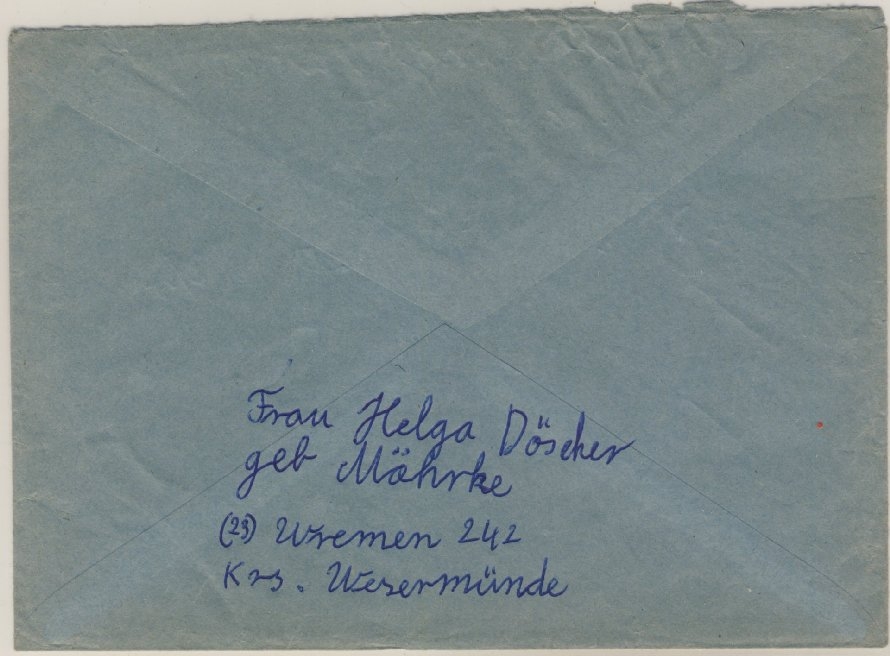 Frau Helga Döscher
geb Möhrke
(23) Wremen 242
Krs. Wesermünde